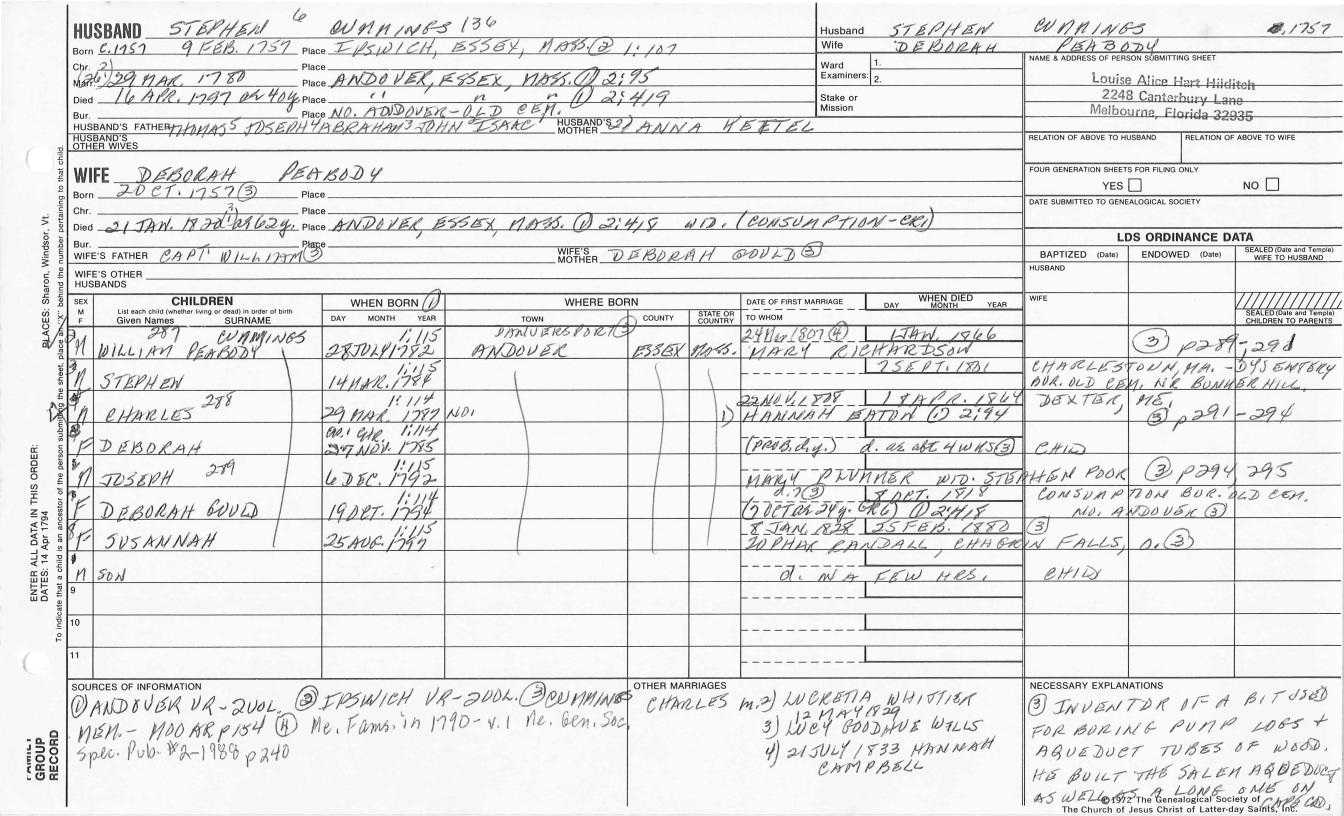 HUSBAND STEPHEN 6 CUMMINGS 136
Born C.1757 9 FEB. 1757 Place IPSWICH, ESSEX, MASS. ② 1:107
Chr. Place
Marr. 29 MAR. 1780 Place ANDOVER, ESSEX, MASS. ① 2:95
Died 16 APR. 1797 ae 40y. Place " " " ① 2:419
Bur. Place NO. ANDOVER-OLD CEM.
HUSBAND'S FATHER THOMAS5 JOSEPH4 ABRAHAM3 JOHN ISAAC HUSBAND'S MOTHER 2) ANNA KETTEL
HUSBAND'S OTHER WIVES
WIFE DEBORAH PEABODY
Born 2 OCT. 1757 ③ Place
Chr. Place
Died 21 JAN. 1820 ae 62y. Place ANDOVER, ESSEX, MASS. ① 2:418 WID. (CONSUMPTION-CR1)
Bur. Place
WIFE'S FATHER CAPT WILLIAM ③ WIFE'S MOTHER DEBORAH GOULD ③
WIFE'S OTHER HUSBANDS
Husband STEPHEN CUMMINGS 1757
Wife DEBORAH PEABODY
Ward Examiners: 1.
2.
Stake or Mission
NAME & ADDRESS OF PERSON SUBMITTING SHEET
Louise Alice Hart Hilditch
2248 Canterbury Lane
Melbourne, Florida 32935
RELATION OF ABOVE TO HUSBAND RELATION OF ABOVE TO WIFE
FOUR GENERATION SHEETS FOR FILING ONLY
YES NO
DATE SUBMITTED TO GENEALOGICAL SOCIETY
LDS ORDINANCE DATA
BAPTIZED (Date) ENDOWED (Date) SEALED (Date and Temple) WIFE TO HUSBAND
HUSBAND
WIFE
SEALED (Date and Temple) CHILDREN TO PARENTS
SEX M F CHILDREN WHEN BORN ① WHERE BORN DATE OF FIRST MARRIAGE WHEN DIED
List each child (whether living or dead) in order of birth
Given Names SURNAME DAY MONTH YEAR TOWN COUNTY STATE OR COUNTRY TO WHOM DAY MONTH YEAR
287 CUMMINGS 1:115 DANVERSPORT ③ 1807 ④ 1 JAN. 1866
M WILLIAM PEABODY 28 JULY 1782 ANDOVER ESSEX MASS. MARY RICHARDSON ③ p289-291
M STEPHEN 1:115 14 MAR. 1784 7 SEPT. 1801 CHARLESTOWN, MA. - DYSENTERY
BUR. OLD CEM. NR BUNKER HILL.
288 1:114 22 NOV. 1808 18 APR. 1864 DEXTER, ME.
M CHARLES 29 MAR. 1787 NO. 1) HANNAH EATON ① 2:94 ③ p291-294
1:114
F DEBORAH 27 NOV. 1785 (PROB. d.y.) d. ae abt 4 WKS ③ CHILD
289 1:115
M JOSEPH 6 DEC. 1792 MARY PLUMMER WID. STEPHEN POOR ③ p294, 295
1:114 d. ? ③ 8 OCT. 1818 CONSUMPTION BUR. OLD CEM.
F DEBORAH GOULD 19 OCT. 1794 (7 OCT ae 24y. CR6) ① 2:418 NO. ANDOVER ③
1:115 8 JAN. 1828 25 FEB. 1880 ③
F SUSANNAH 25 AUG. 1797 ZOPHAR RANDALL, CHAGRIN FALLS, O. ③
M SON d. IN A FEW HRS. CHILD
9
10
11
SOURCES OF INFORMATION
① ANDOVER VR-2VOL. ② IPSWICH VR-2VOL. ③ CUMMINGS
MEM. - MOOAR p154 ④ Me. Fams. in 1790 - v.1 Me. Gen. Soc.
Spec. Pub. #2-1988 p240
OTHER MARRIAGES
CHARLES m. 2) LUCRETIA WHITTIER
12 MAY 1829
3) LUCY GOODHUE WILLS
4) 21 JULY 1833 HANNAH
CAMPBELL
NECESSARY EXPLANATIONS
③ INVENTOR OF A BIT USED
FOR BORING PUMP LOGS +
AQUEDUCT TUBES OF WOOD.
HE BUILT THE SALEM AQUEDUCT
AS WELL AS A LONG ONE ON
CAPE COD.
©1972 The Genealogical Society of
The Church of Jesus Christ of Latter-day Saints, Inc.
FAMILY GROUP RECORD
ENTER ALL DATA IN THIS ORDER:
DATES: 14 Apr 1794
PLACES: Sharon, Windsor, Vt.
To indicate that a child is an ancestor of the person submitting the sheet, place an "X" behind the number pertaining to that child.